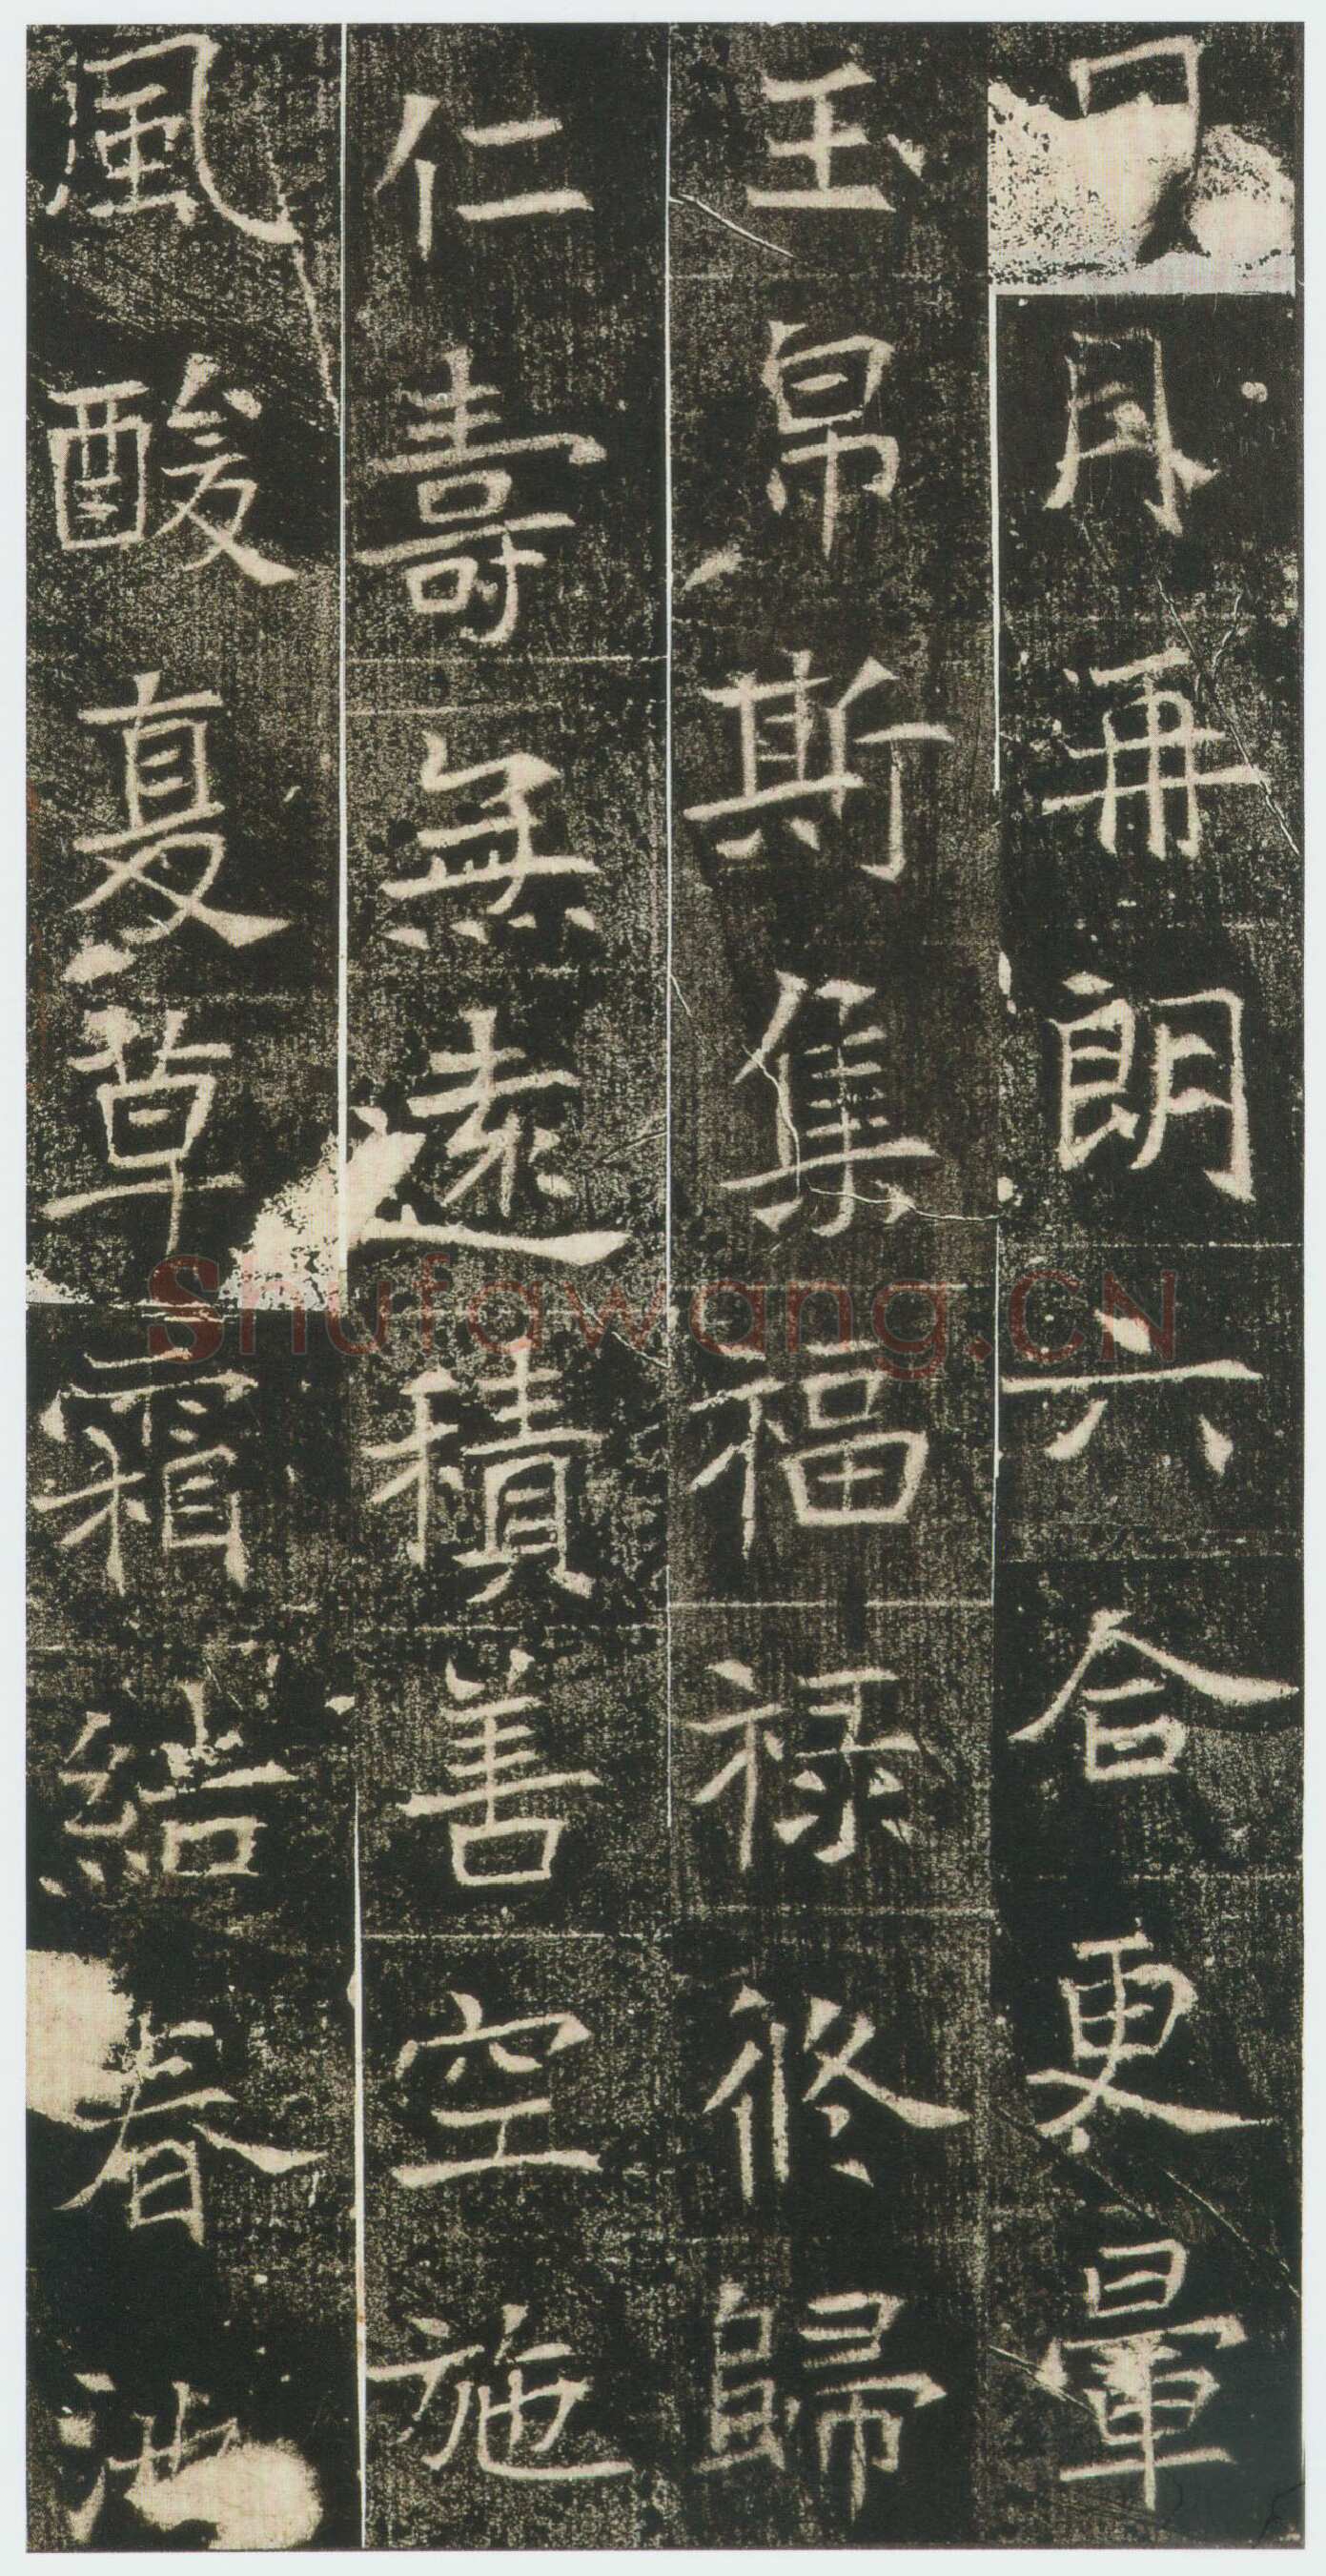 月再朗六合更暈
玉帛斯集福祿修歸
仁壽無遠積善空施
風酸夏草霜結春池
Shufawang.CN